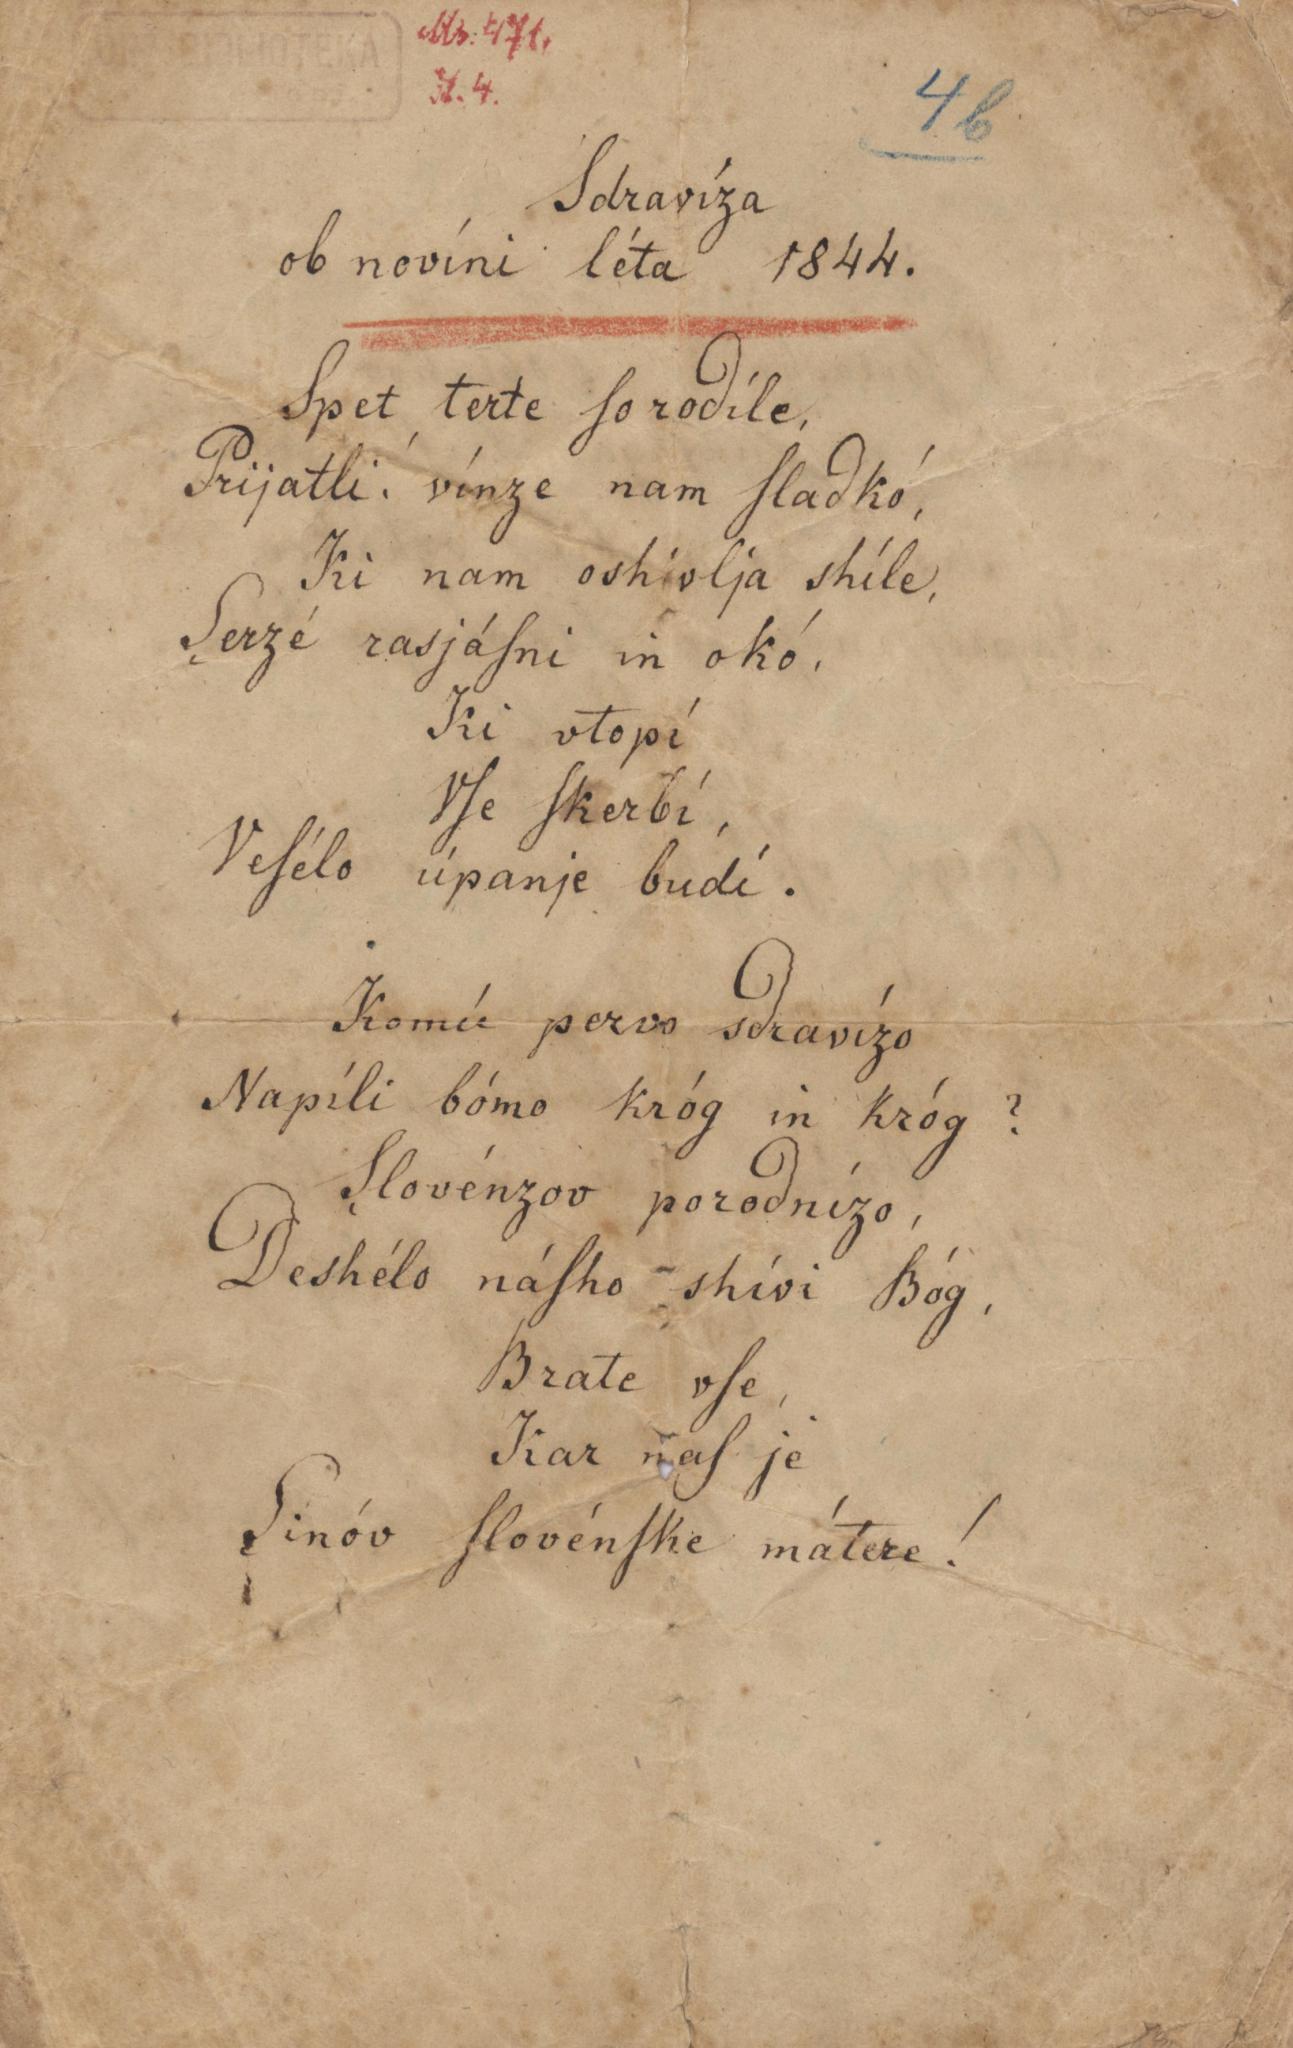 Ms. 471.
4b
Sdravíza
ob novíni léta 1844.
Spet terte ſo rodíle,
Prijatli! vínze nam ſladkó,
Ki nam oshívlja shíle,
Șerzé rasjáſni in okó,
Ki vtopí
Vſe ſkerbí,
Veſélo úpanje budí.
Komú pervo sdravízo
Napíli bómo króg in króg?
Șlovénzov porodnízo,
Deshélo náſho shívi Bóg,
Brate vſe,
Kar naſ je
Șinóv ſlovénſke mátere!